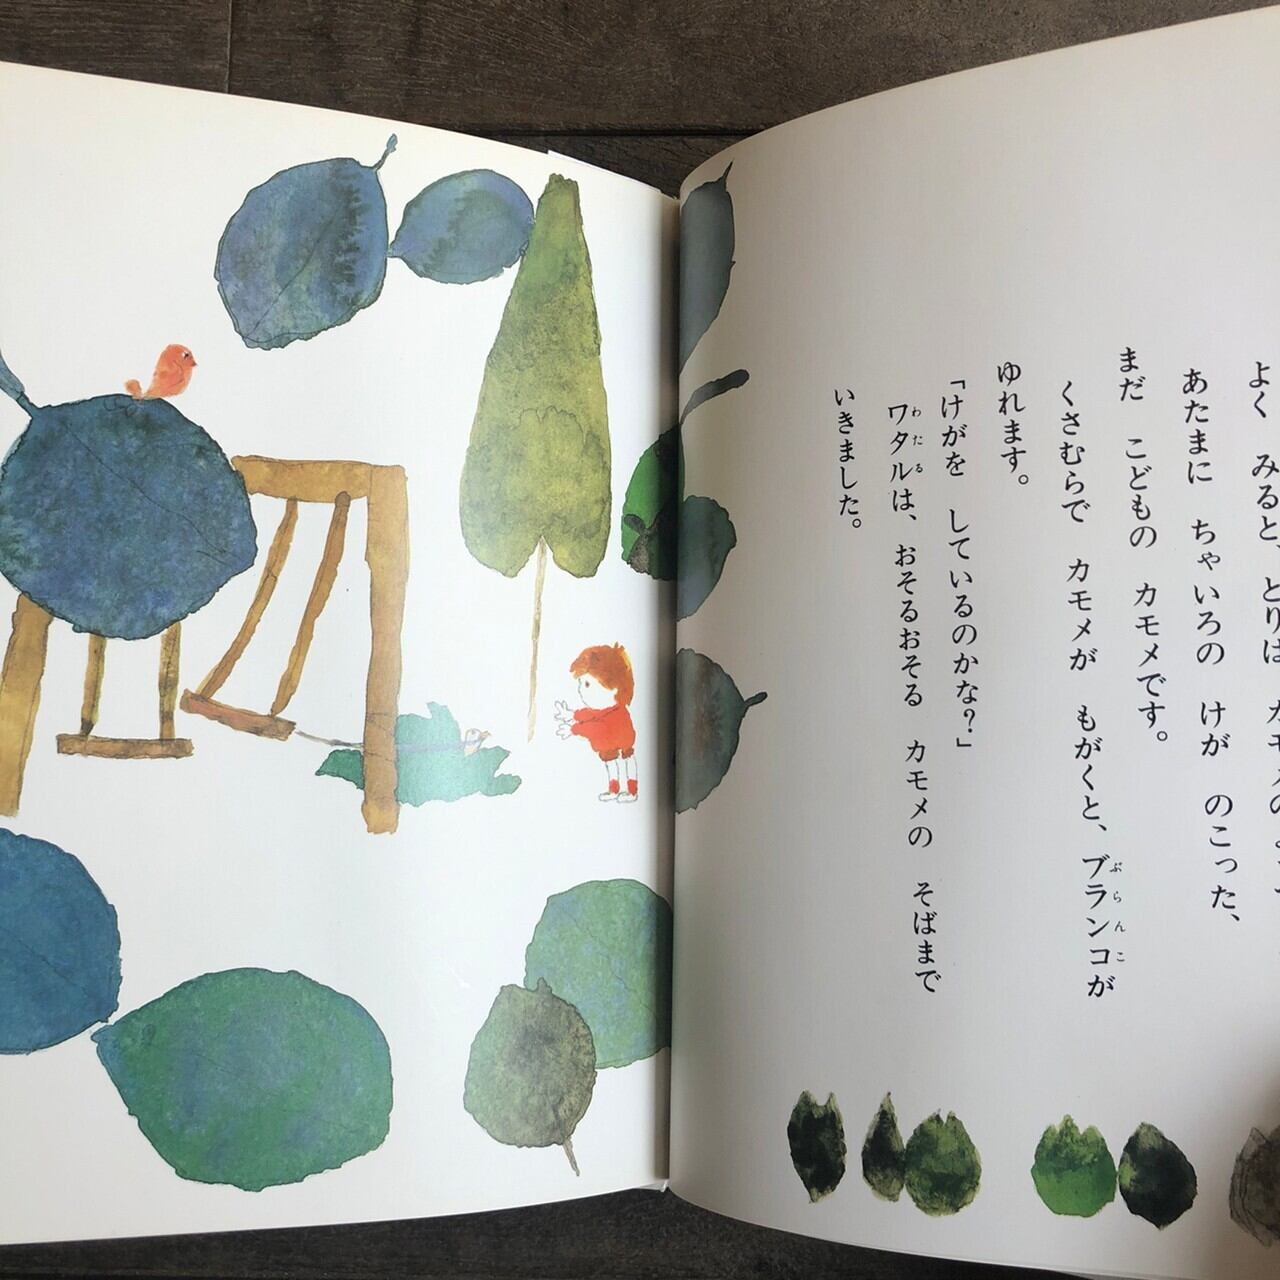 よく みると、とりは カモメの
あたまに ちゃいろの けが のこった、
まだ こどもの カモメです。
くさむらで カモメが もがくと、ブランコが
ぶらんこ
ゆれます。
「けがを しているのかな？」
ワタルは、おそるおそる カモメの そばまで
わたる
いきました。